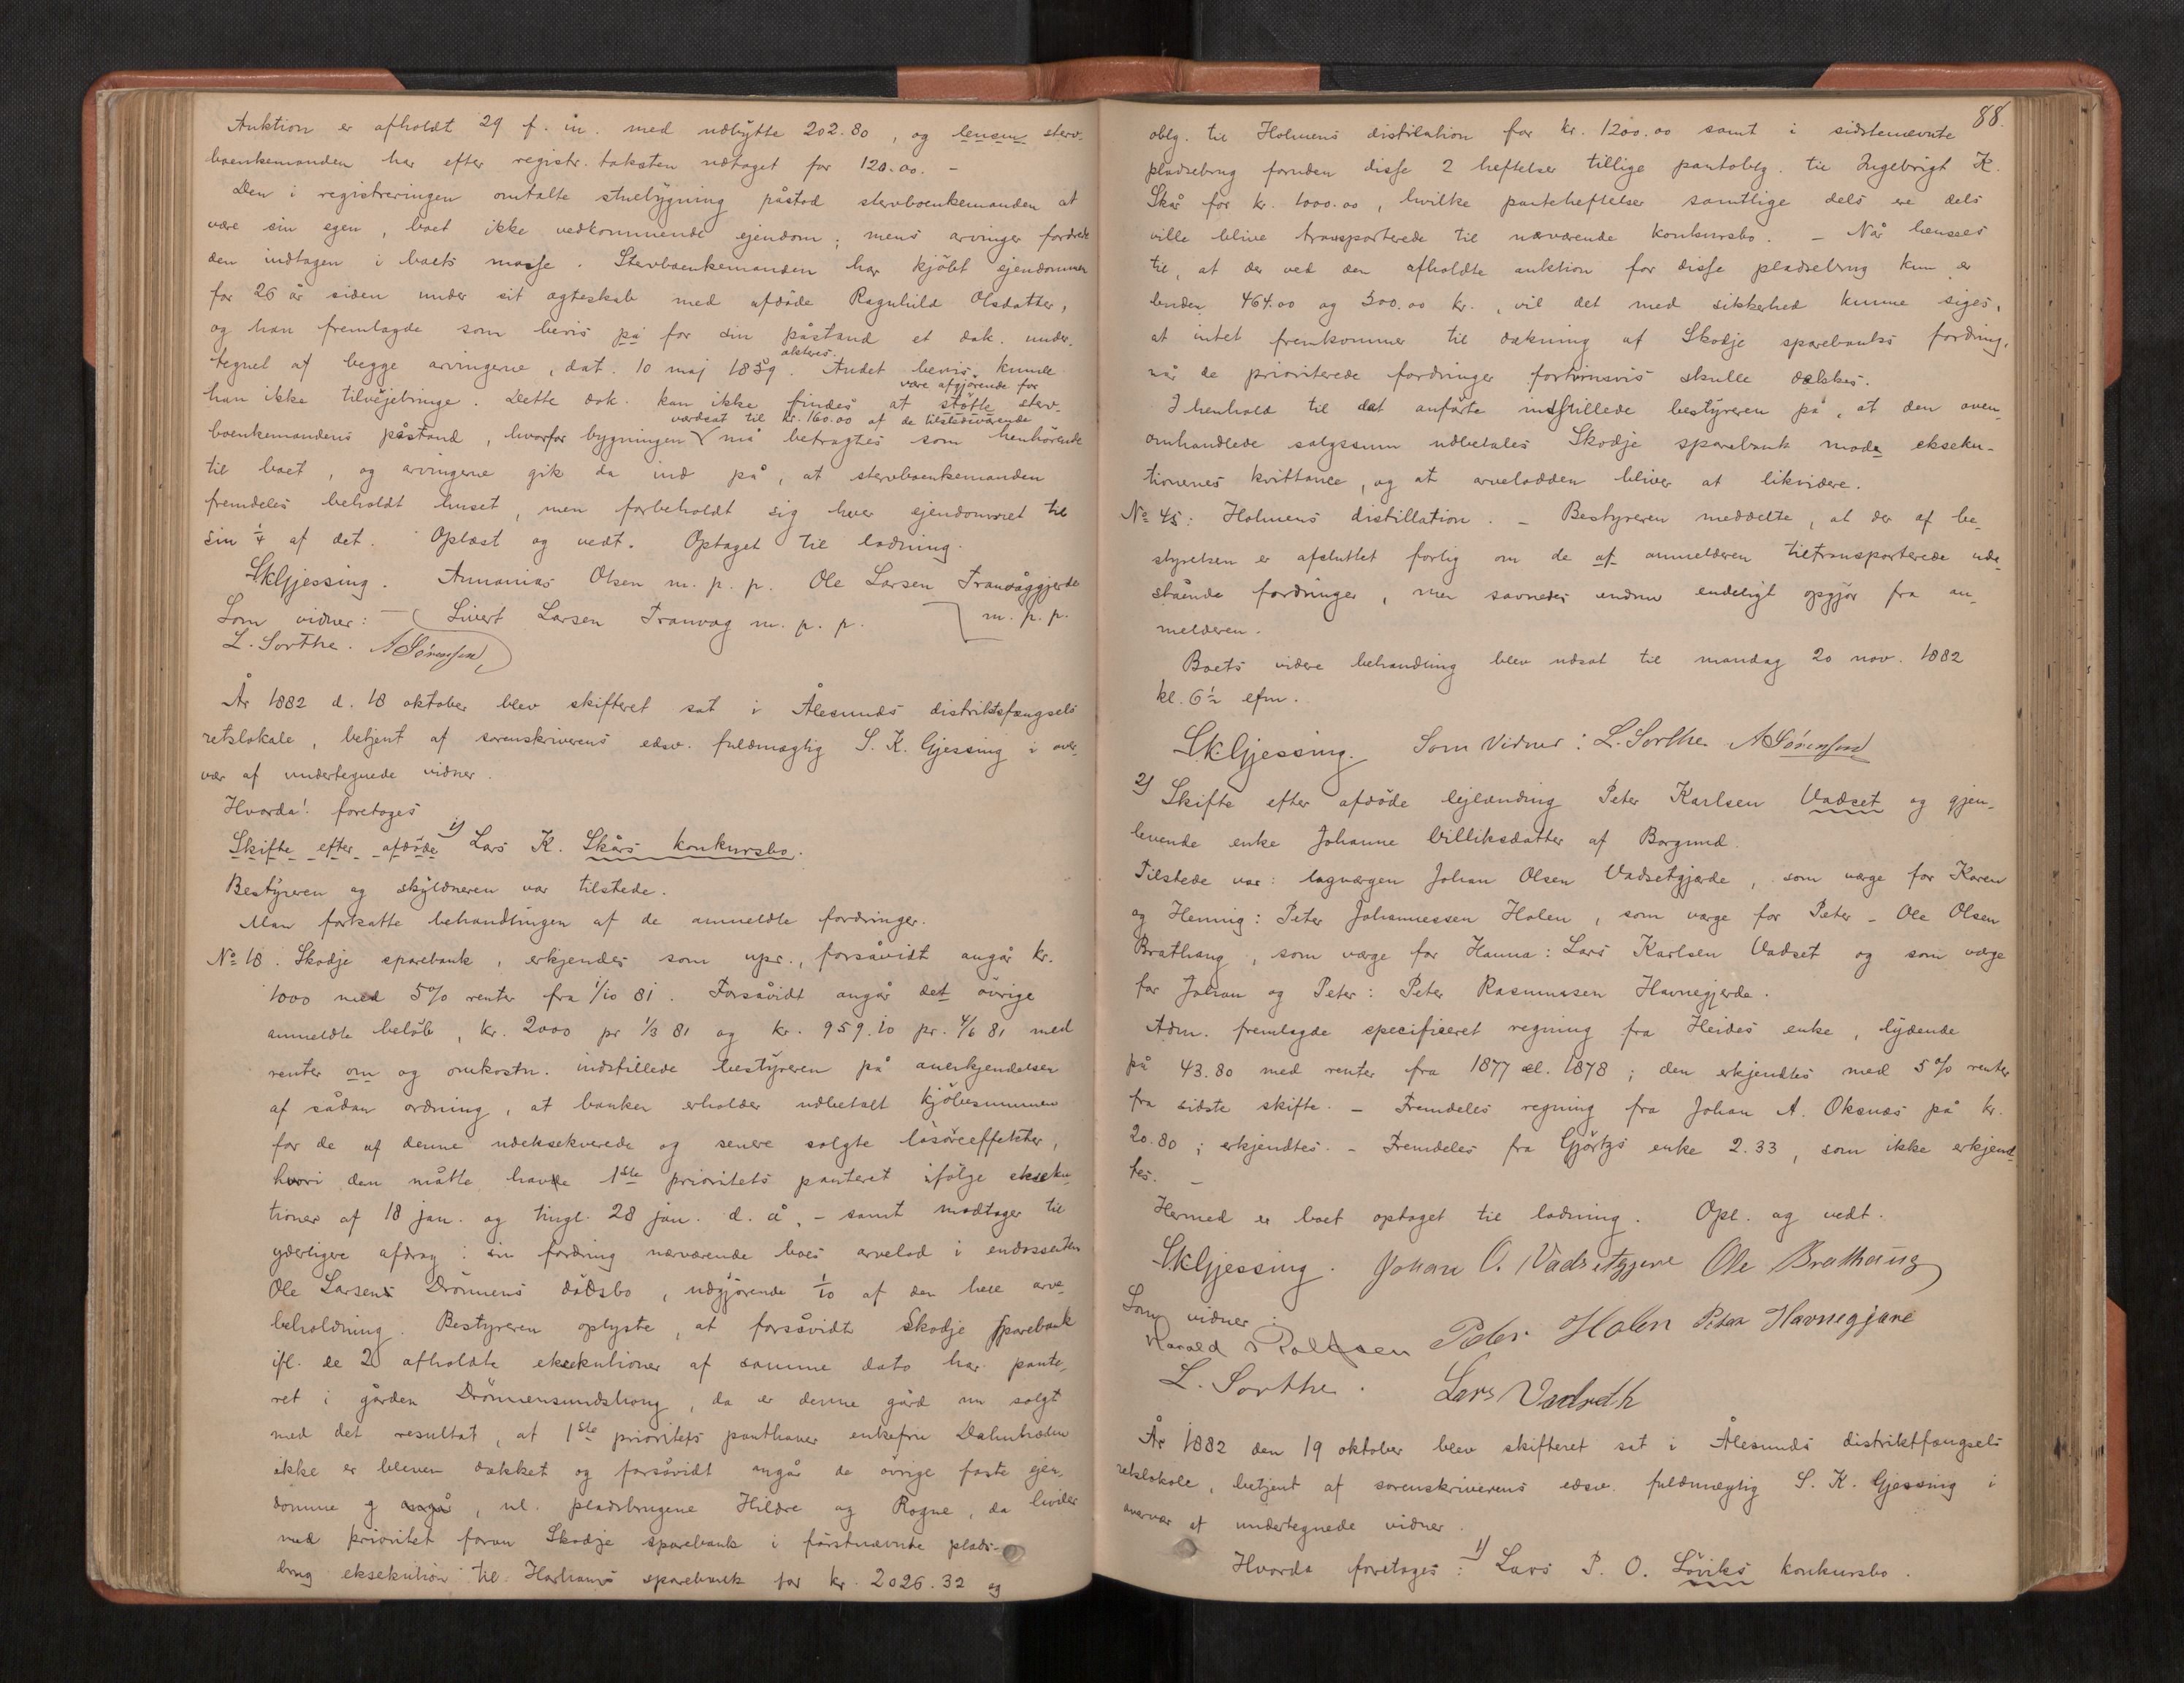 Auktion er afholdt 29 f. m. med udbytte 202.80, og sterv-
boenkemanden har efter registr. taksten udtaget for 120.00. -
Den i registreringen omtalte stuebygning påstod stervboenkemanden at
være sin egen, boet ikke vedkommende ejendom; mens arvinger fordrede
den indtagen i boets masse. Stervboenkemanden har kjöbt ejendommen
for 26 år siden under sit ægteskab med afdöde Ragnhild Olsdatter,
og han fremlagde som bevis på for sin påstand et dok. under-
tegnet af begge arvingerne, dat. 10 maj 1859. akteres. Andet bevis kunde
han ikke tilvejebringe. Dette dok. kan ikke findes at være afgjörende for stötte sterv-
boenkemandens påstand, hvorfor bygningen værdsat til kr. 160.00 af de tilstedeværende må betragtes som henhörende
til boet, og arvingerne gik da ind på, at stervboenkemanden
fremdeles beholdt huset, men forbeholdt sig hver ejendomsret til
sin ¼ af det. Oplæst og vedt. Optaget til lodning.
SKGjessing. Annanias Olsen m. p. p. Ole Larsen Tranvåggjerde
Som vidner: Sivert Larsen Tranvåg m. p. p. m. p. p.
L. Sorthe. A Sörensen
År 1882 d. 18 oktober blev skifteret sat i Ålesunds distriktsfængsels
retslokale, betjent af sorenskriverens edsv. fuldmægtig S. K. Gjessing i over-
vær af undertegnede vidner.
Hvorda: foretoges
Skifte efter afdöde 1) Lars K. Skårs konkursbo.
Bestyreren og skyldneren var tilstede.
Man fortsatte behandlingen af de anmeldte fordringer.
No 18. Skodje sparebank, erkjendes som upr., forsåvidt angår kr.
1000 med 5% renter fra 1/10 81. Forsåvidt angår det övrige
anmeldte belöb, kr. 2000 pr 1/3 81 og kr. 959.10 pr. 4/6 81 med
renter om og omkostn. indstillede bestyreren på anerkjendelsen
af sådan ordning, at banken erholder udbetalt kjöbesummen
for de af denne udeksekverede og senere solgte lösöreeffekter,
hvori den måtte havde 1ste prioritets panteret ifölge exseku-
tioner af 18 jan. og tingl. 28 jan. d. å. - samt modtager til
yderligere afdrag i sin fordring nærværende boes arvelod i endossenten
Ole Larsens Drönnens dödsbo, udgjörende 1/10 af den hele arve-
beholdning. Bestyreren oplyste, at forsåvidt Skodje sparebank
ifl. de 2 afholdte eksekutioner af samme dato har pante-
ret i gården Drönnensundshoug, da er denne gård nu solgt
med det resultat, at 1ste prioritets panthaver enkefru
ikke er bleven dækket og forsåvidt angår de övrige faste ejen-
domme g angår, nl. pladsbrugene Hildre og Rogne, da hviler
med prioritet foran Skodje sparebank i förstnævnte plads-
brug eksekution til Harhams sparebank for kr. 2026.32 og
88.
oblg. til Holmens distilation for kr. 1200.00 samt i sidstenævnte
pladsebrug foruden disse 2 heftelser tillige pantoblg. til Ingebrigt K.
Skår for kr. 1000.00, hvilke panteheftelser samtlige dels ere dels
ville blive transporterede til nærværende konkursbo. - Når henseees
til, at der ved den afholdte auktion for disse pladsebrug kun er
buden 464.00 og 300.00 kr., vil det med sikkerhed kunne siges,
at intet fremkommer til dækning af Skodje sparebanks fordring,
når de prioriterede fordringer fortrinsvis skulle dækkes.
I henhold til dat anförte indstillede bestyreren på, at den oven-
omhandlede salgssum udbetales Skodje sparebank mode ekseku-
tionernes kvittance, og at arvelodden bliver at likvidere.
No 45: Holmens distillation. - Bestyreren meddelte, at der af be-
styrelsen er afsluttet forlig om de af anmelderen tiltransporterede ude-
stående fordringer, men savnedes endnu endeligt opgjör fra an-
melderen.
Boets videre behandling blev udsat til mandag 20 nov. 1882
kl. 6½ efm.
SKGjessing. Som Vidner: L. Sorthe. A Sörensen
2) Skifte efter afdöde lejlænding Peter Karlsen Vadset og gjen-
levende enke Johanne Villiksdatter af Borgund.
Tilstede var: lagværgen Johan Olsen Vadsetgjærde, som værge for Karen
og Henning: Peter Johannessen Holen, som værge for Peter - Ole Olsen
Brathaug, som værge for Hanna: Lars Karlsen Vadset og som værge
for Johan og Peter: Peter Rasmussen Havnegjerde.
Adm. fremlagde specificeret regning fra Heides enke, lydende
på 43.80 med renter fra 1877 el. 1878; den erkjendtes med 5% renter
fra sidste skifte. - Fremdeles regning fra Johan A. Oksnæs på kr.
20.80; erkjendtes. - Fremdeles fra Gjörtzs enke 2.33, som ikke erkjend-
tes. -
Hermed er boet optaget til lodning. Opl. og vedt.
SKGjessing. Johan O. Vadsetgjære Ole Brathaug
Som vidner:
Harald Rolfsen Peder Holen Peter Havnegjære
L. Sorthe. Lars Vadseth
År 1882 den 19 oktober blev skifteret sat i Ålesunds distriktfængsels
retslokale, betjent af sorenskriverens edsv. fuldmægtig S. K. Gjessing i
overvær af undertegnede vidner.
Hvorda foretoges: 1) Lars P. O. Löviks konkursbo.